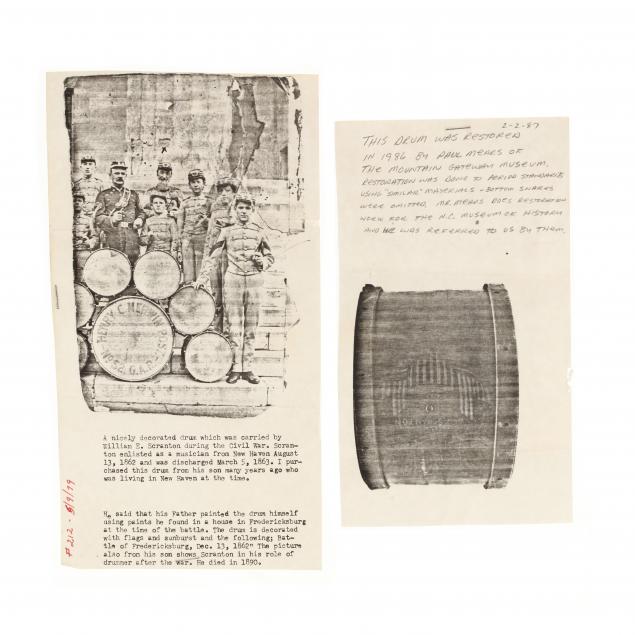 HENRY C. MERWIN
NO. 52. G.A.R. POST
A nicely decorated drum which was carried by
William E. Scranton during the Civil War. Scran-
ton enlisted as a musician from New Haven August
13, 1862 and was discharged March 5, 1863. I pur-
chased this drum from his son many years ago who
was living in New Haven at the time.
He said that his Father painted the drum himself
using paints he found in a house in Fredericksburg
at the time of the battle. The drum is decorated
with flags and sunburst and the following; Bat-
tle of Fredericksburg, Dec. 13, 1862" The picture
also from his son shows Scranton in his role of
drummer after the war. He died in 1890.
2-2-87
THIS DRUM WAS RESTORED
IN 1986 BY PAUL MEARS OF
THE MOUNTAIN GATEWAY MUSEUM.
RESTORATION WAS DONE TO PERIOD STANDARDS
USING "SIMILAR" MATERIALS - BOTTOM SNARES
WERE OMITTED. MR. MEARS DOES RESTORATION
WORK FOR THE N.C. MUSEUM OF HISTORY
AND HE WAS REFERRED TO US BY THEM.